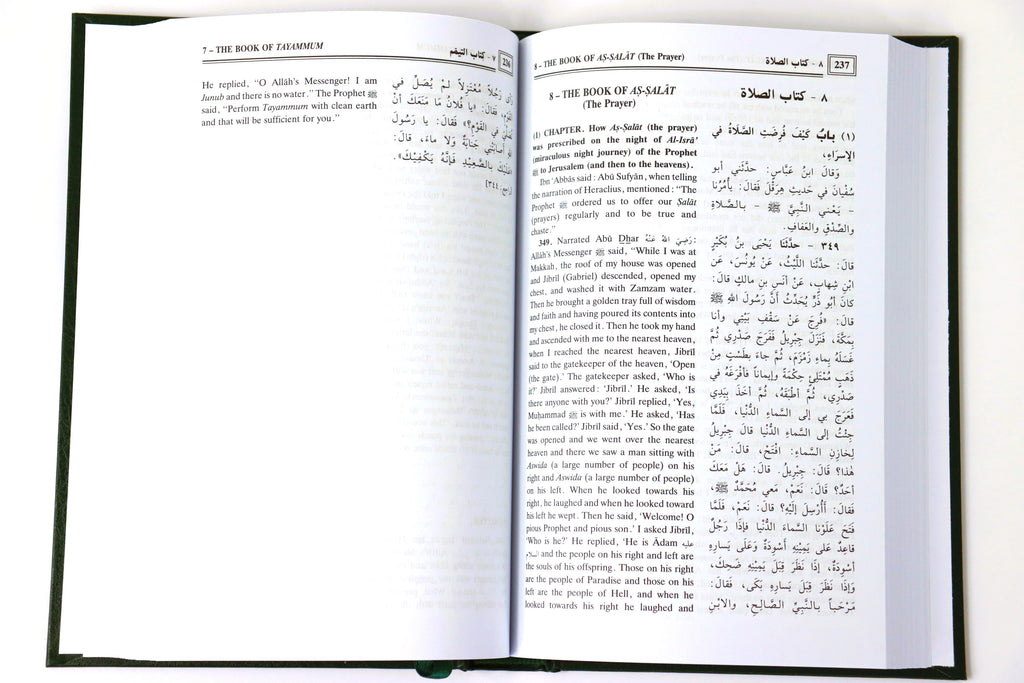 7 – THE BOOK OF TAYAMMUM
٧ - كتاب التيمم
236
He replied, “O Allâh’s Messenger! I am
Junub and there is no water.” The Prophet ﷺ
said, “Perform Tayammum with clean earth
and that will be sufficient for you.”
رَأَى رَجُلاً مُعْتَزِلاً لَمْ يُصَلِّ فِي
القَوْمِ، فَقَالَ: «يا فُلَانُ مَا مَنَعَكَ أَنْ
تُصَلِّيَ في القَوْمِ؟» فَقَالَ: يا رَسُولَ
اللهِ أصابَتْنِي جَنَابَةٌ وَلا ماءَ، قالَ:
«عَلَيْكَ بالصَّعِيدِ فَإِنَّهُ يَكْفِيكَ».
[راجع: ٣٤٤]
8 – THE BOOK OF AṢ-ṢALÂT (The Prayer)
٨ - كتاب الصلاة
237
8 – THE BOOK OF AṢ-ṢALÂT
(The Prayer)
٨ - كتاب الصلاة
(1) CHAPTER. How Aṣ-Ṣalât (the prayer)
was prescribed on the night of Al-Isrâ’
(miraculous night journey) of the Prophet
ﷺ to Jerusalem (and then to the heavens).
Ibn ‘Abbâs said: Abû Sufyân, when telling
the narration of Heraclius, mentioned: “The
Prophet ﷺ ordered us to offer our Ṣalât
(prayers) regularly and to be true and
chaste.”
349. Narrated Abû Dhar رَضِيَ اللهُ عَنْهُ:
Allâh’s Messenger ﷺ said, “While I was at
Makkah, the roof of my house was opened
and Jibrîl (Gabriel) descended, opened my
chest, and washed it with Zamzam water.
Then he brought a golden tray full of wisdom
and faith and having poured its contents into
my chest, he closed it. Then he took my hand
and ascended with me to the nearest heaven,
when I reached the nearest heaven, Jibrîl
said to the gatekeeper of the heaven, ‘Open
(the gate).’ The gatekeeper asked, ‘Who is
it?’ Jibrîl answered: ‘Jibrîl.’ He asked, ‘Is
there anyone with you?’ Jibrîl replied, ‘Yes,
Muhammad ﷺ is with me.’ He asked, ‘Has
he been called?’ Jibrîl said, ‘Yes.’ So the gate
was opened and we went over the nearest
heaven and there we saw a man sitting with
Aswida (a large number of people) on his
right and Aswida (a large number of people)
on his left. When he looked towards his
right, he laughed and when he looked toward
his left he wept. Then he said, ‘Welcome! O
pious Prophet and pious son.’ I asked Jibrîl,
‘Who is he?’ He replied, ‘He is Âdam عليه
السلام and the people on his right and left are
the souls of his offspring. Those on his right
are the people of Paradise and those on his
left are the people of Hell, and when he
looked towards his right he laughed and
(١) بابٌ كَيْفَ فُرِضَتِ الصَّلَاةُ في
الإسراءِ،
وَقَالَ ابنُ عَبَّاسٍ: حدَّثَني أبو
سُفْيَانَ في حَدِيثِ هِرَقْلَ فَقَالَ: يَأْمُرُنا
- يَعْنِي النَّبِيَّ ﷺ - بالصَّلاةِ
والصِّدْقِ والعَفافِ.
٣٤٩ - حدَّثَنا يَحْيَى بنُ بُكَيْرٍ
قالَ: حدَّثَنا اللَّيْثُ، عَنْ يُونُسَ، عَنِ
ابْنِ شِهابٍ، عَنْ أَنَسِ بنِ مالِكٍ قالَ:
كانَ أبو ذَرٍّ يُحَدِّثُ أنَّ رَسُولَ اللهِ ﷺ
قالَ: «فُرِجَ عَنْ سَقْفِ بَيْتِي وأنا
بِمَكَّةَ، فَنَزَلَ جِبْرِيلُ فَفَرَجَ صَدْرِي ثُمَّ
غَسَلَهُ بِماءِ زَمْزَمَ، ثُمَّ جاءَ بِطَسْتٍ مِنْ
ذَهَبٍ مُمْتَلِئٍ حِكْمَةً وإيماناً فأفْرَغَهُ في
صَدْرِي، ثُمَّ أطْبَقَهُ، ثُمَّ أخَذَ بِيَدِي
فَعَرَجَ بي إلى السَّماءِ الدُّنْيا، فَلَمَّا
جِئْتُ إلى السَّماءِ الدُّنْيا قالَ جِبْرِيلُ
لِخازِنِ السَّماءِ: افْتَحْ، قَالَ: مَنْ
هٰذا؟ قَالَ: جِبْرِيلُ. قَالَ: هَلْ مَعَكَ
أحَدٌ؟ قَالَ: نَعَمْ، مَعِي مُحَمَّدٌ ﷺ،
فَقَالَ: أَأُرْسِلَ إِلَيْهِ؟ قال: نَعَمْ، فَلَمَّا
فَتَحَ عَلَوْنا السَّماءَ الدُّنْيا فإذَا رَجُلٌ
قاعِدٌ عَلى يَمِينِهِ أَسْوِدَةٌ وَعَلَى يَسارِهِ
أسْوِدَةٌ، إذَا نَظَرَ قِبَلَ يَمِينِهِ ضَحِكَ،
وَإذَا نَظَرَ قِبَلَ يَسارِهِ بَكَى، فَقَالَ:
مَرْحَباً بالنَّبِيِّ الصَّالِحِ، والابْنِ